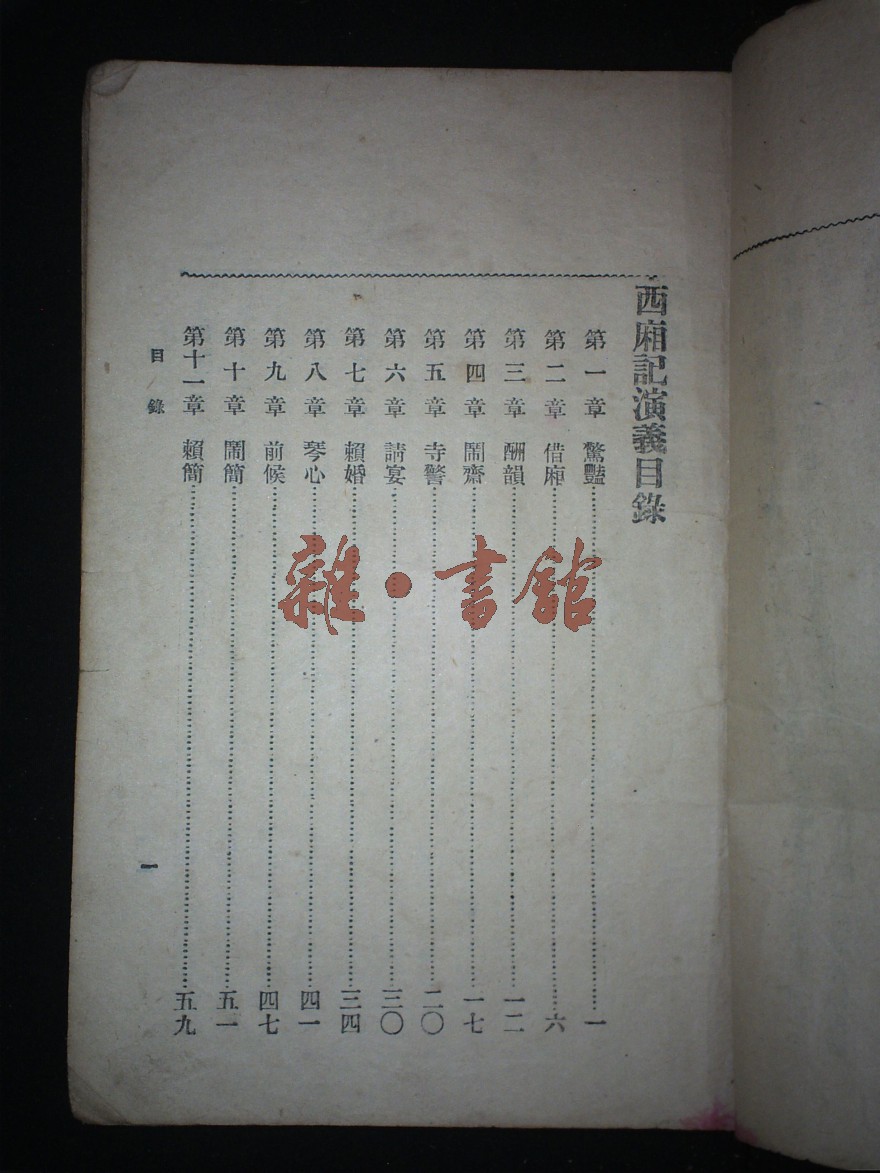 西廂記演義目錄
第一章 驚豔……一
第二章 借廂……六
第三章 酬韻……一二
第四章 鬧齋……一七
第五章 寺警……二〇
第六章 請宴……三〇
第七章 賴婚……三四
第八章 琴心……四一
第九章 前候……四七
第十章 鬧簡……五一
第十一章 賴簡……五九
目錄
一
雜·書館